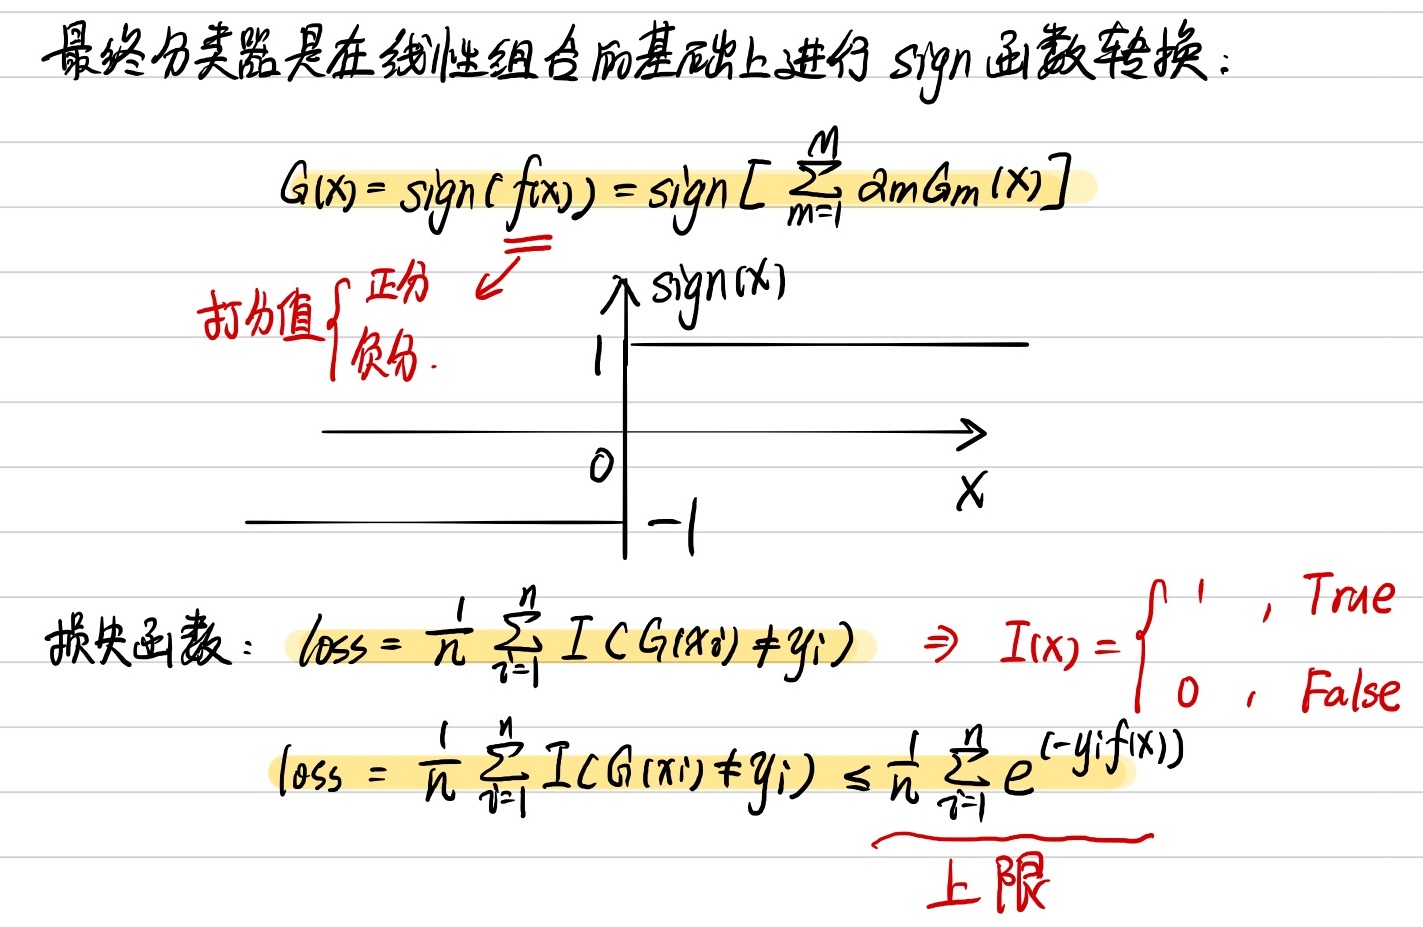 最终分类器是在线性组合的基础上进行 sign 函数转换：
G(x) = sign(f(x)) = sign[ \sum_{m=1}^{M} αmGm(x) ]
打分值 { 正分
负分.
sign(x)
1
0
x
-1
损失函数： loss = \frac{1}{n} \sum_{i=1}^{n} I(G(xi) ≠ yi) ⇒ I(x) = { 1 , True
0 , False
loss = \frac{1}{n} \sum_{i=1}^{n} I(G(xi) ≠ yi) ≤ \frac{1}{n} \sum_{i=1}^{n} e^{(-yif(x))}
上限